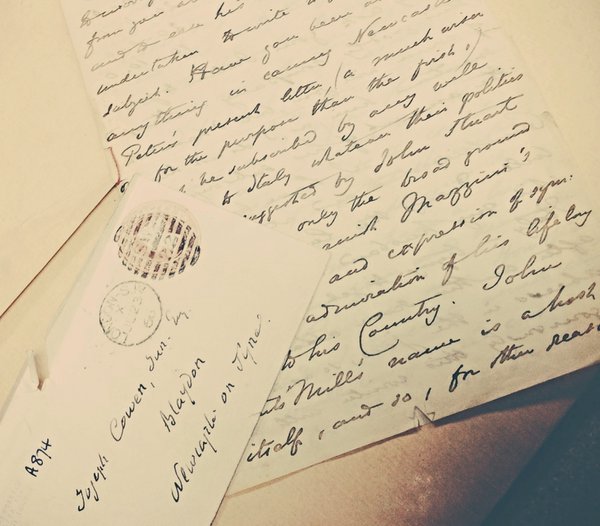 from you
and to see his
undertaken to write
subject. Have you been
anything in canny Newcastle
Peter's present letter (a much wiser
for the purpose than the first,)
be subscribed by any well
to Italy whatever their politics
suggested by John Stuart
only the broad ground
with Mazzini's
and expression of sym:
admiration of his lifelong
to his Country. John
Mill's name is a host
itself, and so, for other reasons
Joseph Cowen, Jun. Esq.
Blaydon
Newcastle on Tyne.
A874